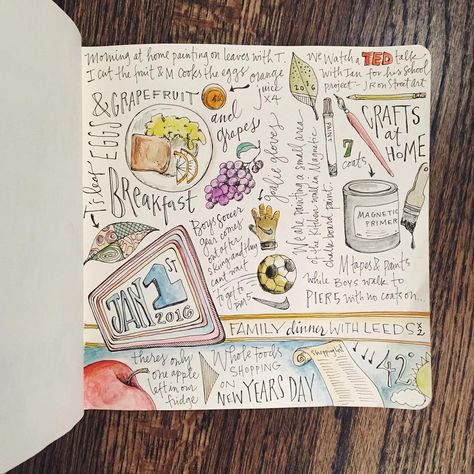 Morning at home painting on leaves with T.
I cut the fruit & M cooks the eggs
orange
juice
x4
& GRAPEFRUIT
and
grapes
EGGS
BreakFast
1st leaf
2016
We watch a TED talk
with Ian for his school
project - JR on Street art
CRAFTS
at
HOME
7
coats
MAGNETIC
PRIMER
We are painting a small area
of the kitchen wall in Magnetic
chalk board paint.
goalie gloves
Boys soccer
gear comes
out after
skiing and they
can't wait
to get to
M tapes & paints
while Boys walk to
PIERS with no coats on...
JAN 1ST
2016
FAMILY dinner WITH LEEDS
there's only
one apple
left in our
fridge
Whole Foods
SHOPPING
ON
NEW YEARS DAY
Shopping list
42°